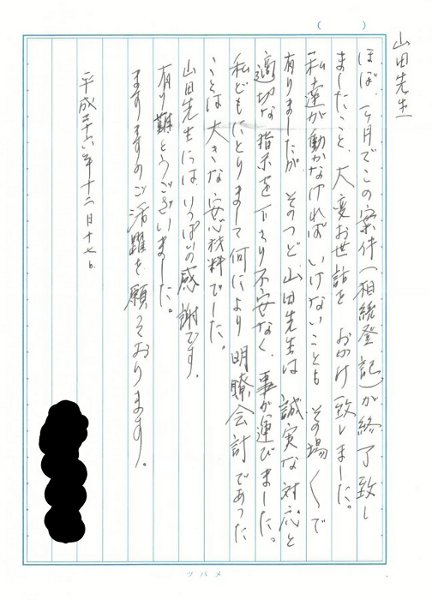 山田先生
ほぼ一ヶ月でこの案件(相続登記)が終了致し
ましたこと、大変お世話を おかけ致しました。
私達が動かなければ いけないことも その場〱で
有りましたが、そのつど、山田先生は 誠実な対応と
適切な指示を下さり不安なく、事が運びました。
私どもにとりまして何により 明瞭会計であった
ことは 大きな安心材料でした。
山田先生には、いっぱいの感謝です。
有り難とうございました。
ますますのご活躍を願っております。
平成二十六年十二月十七日
ツバメ